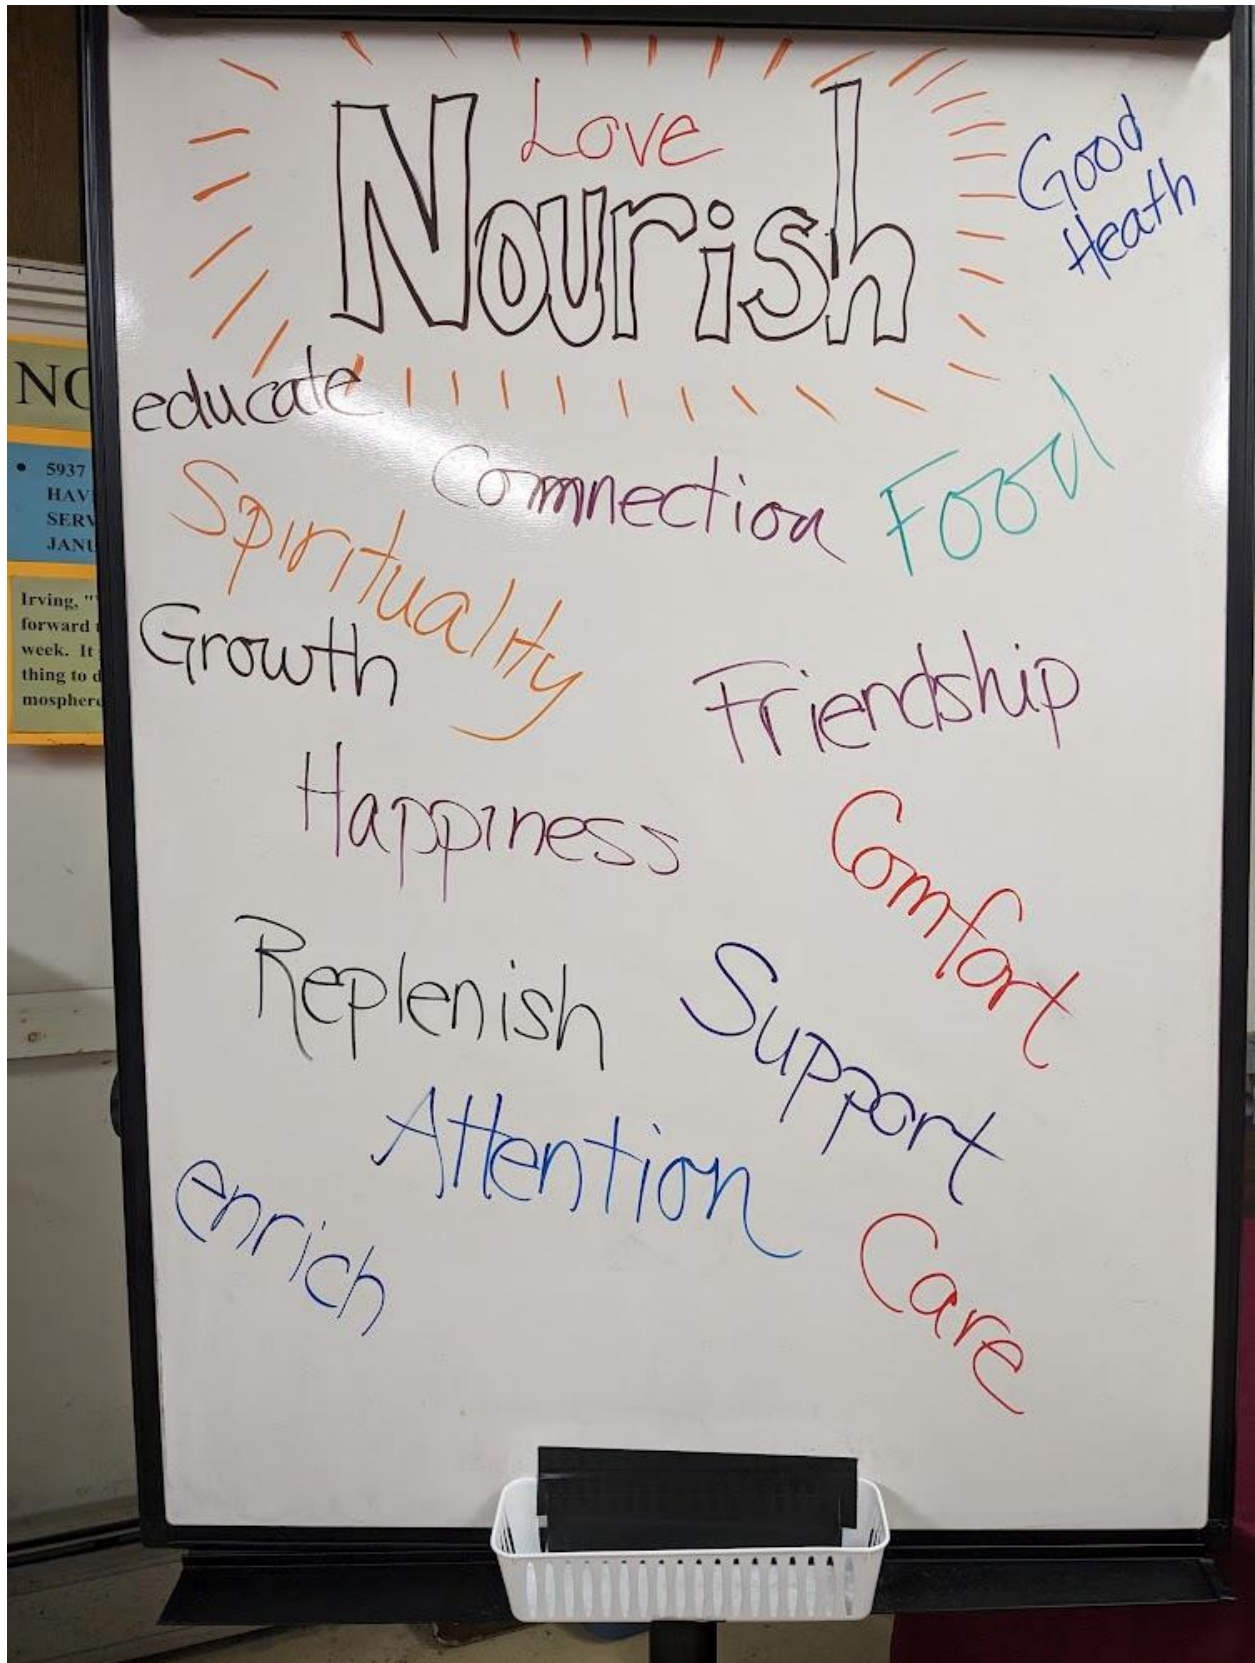 Love
Nourish
Good
Heath
educate
Comnection
Food
Spirituality
Growth
Friendship
Happiness
Comfort
Replenish
Support
Attention
enrich
Care
NO
• 5937
HAV
SERV
JANU
Irving, "
forward
week. It
thing to d
mosphere